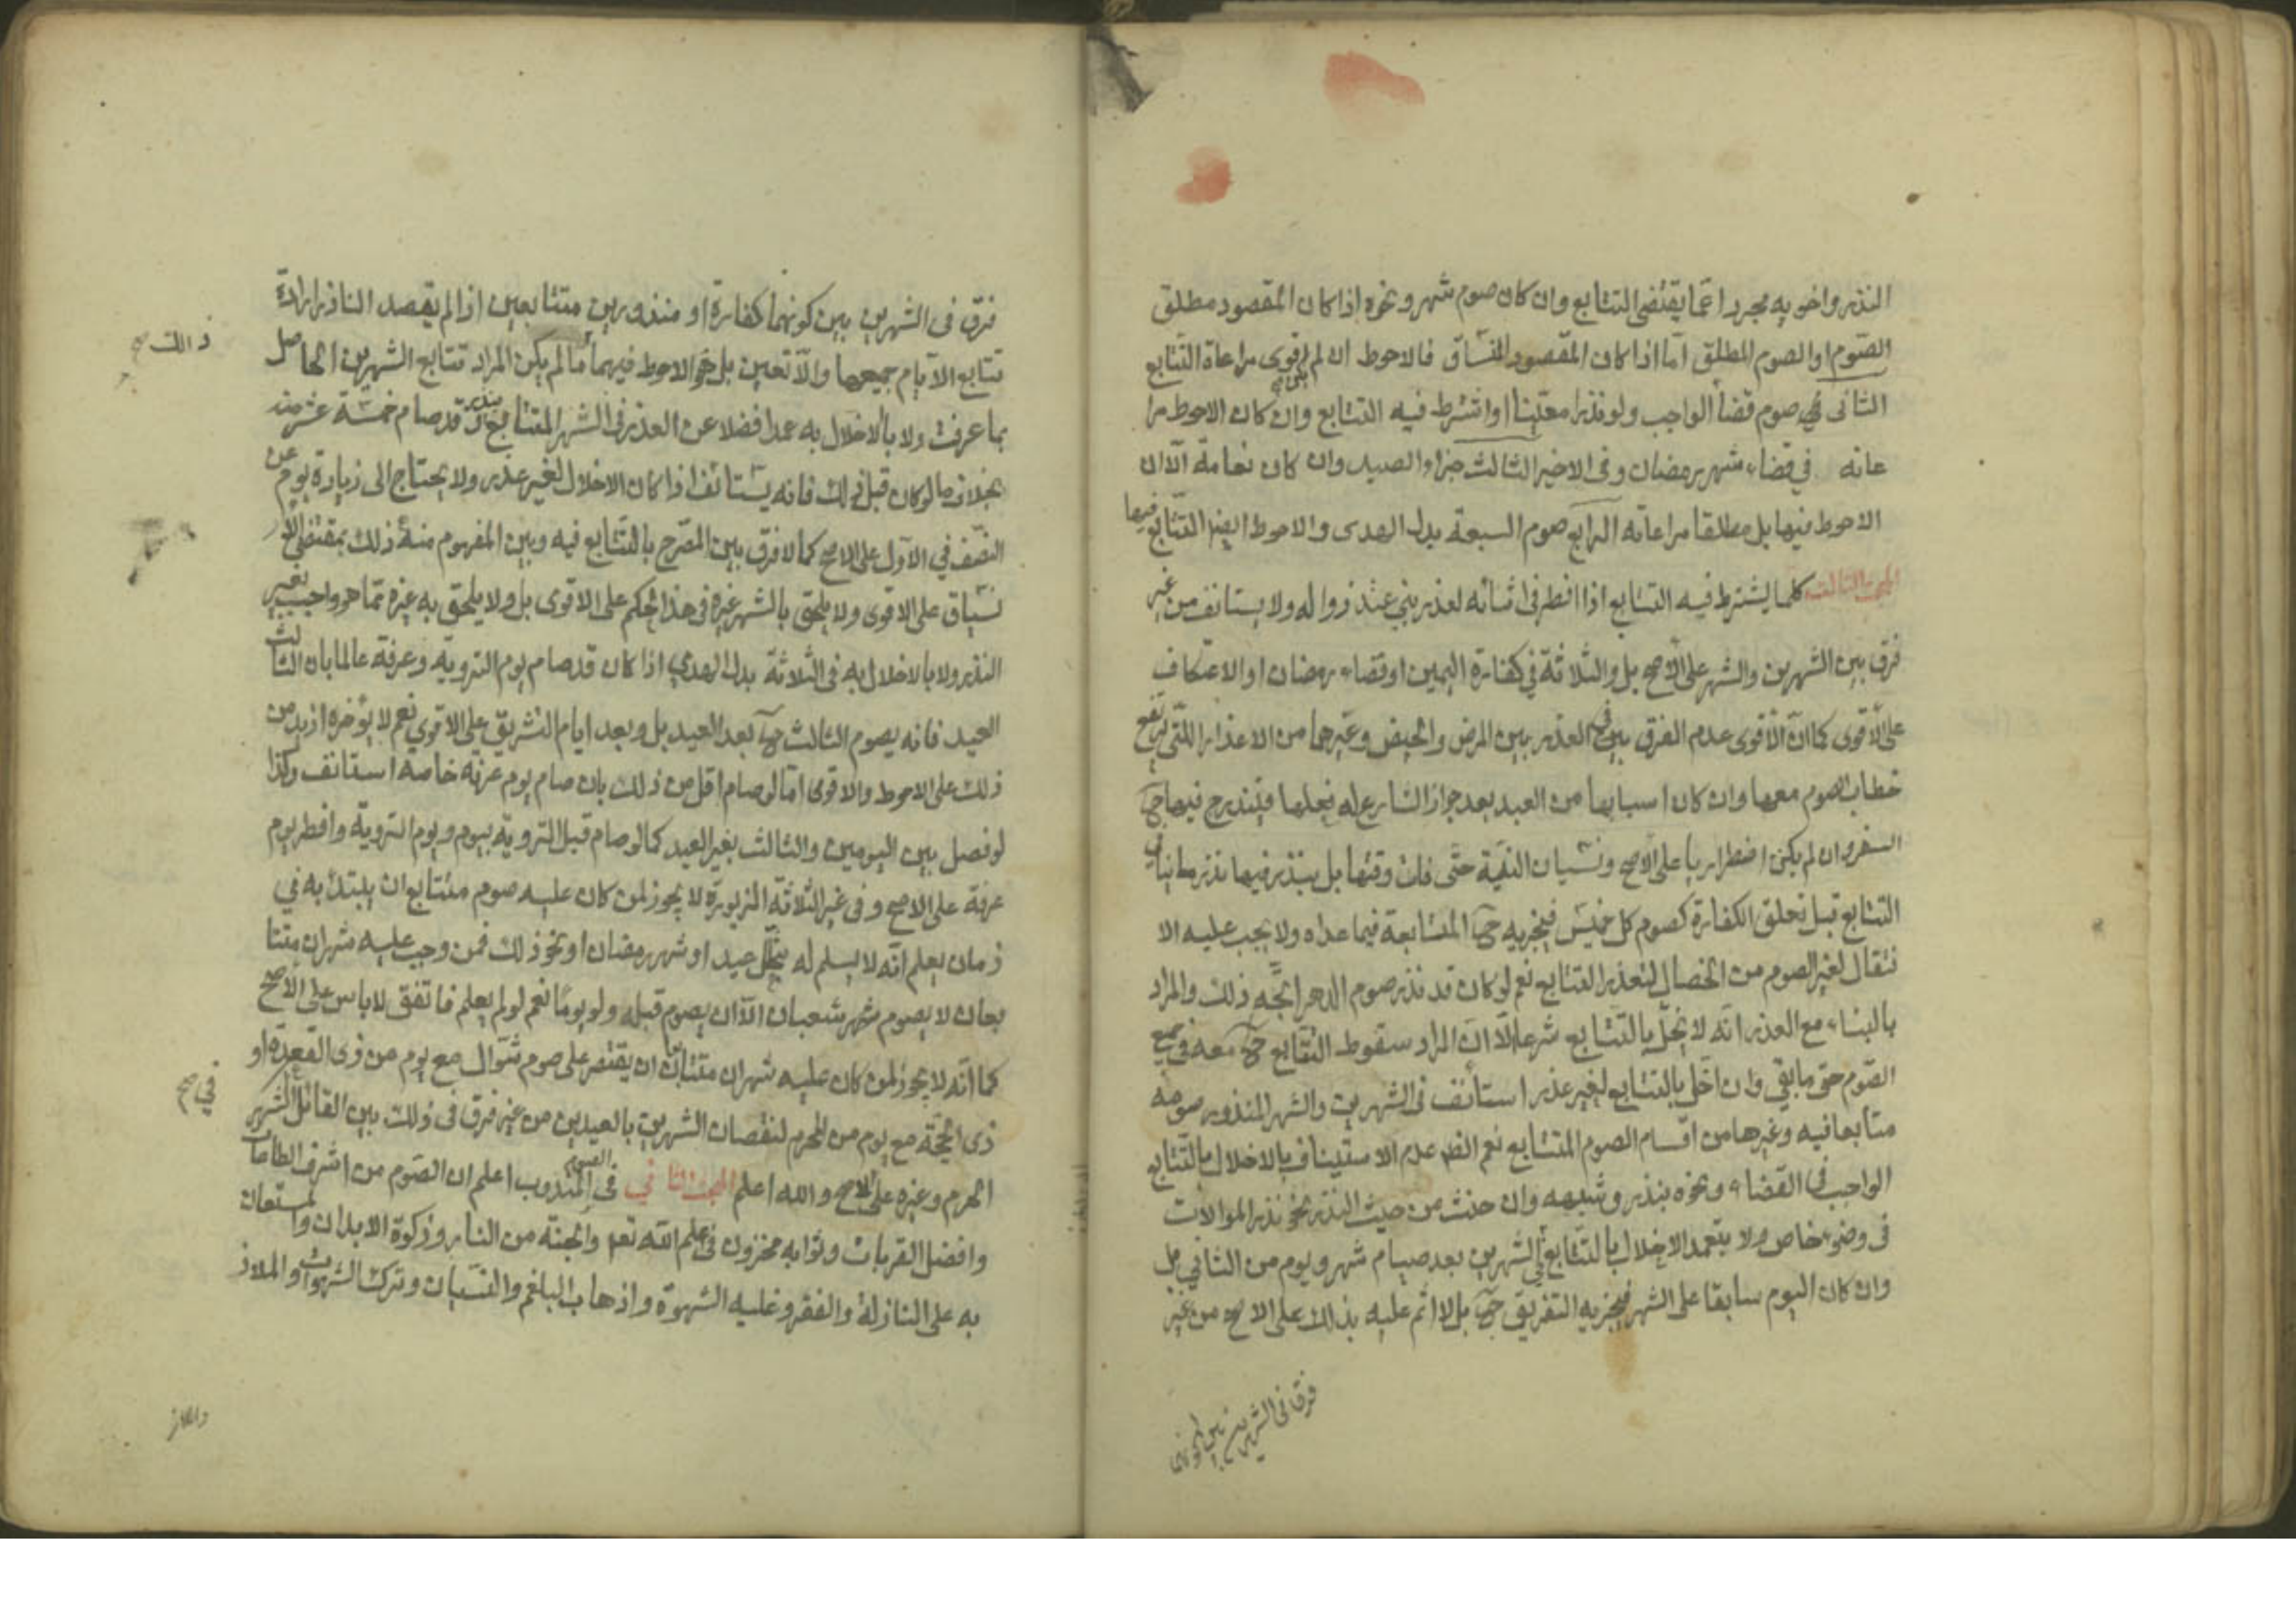 النذر واخويه مجردا عما يقتضى التتابع وان كان صوم شهر ونحوه اذا كان المقصود مطلق
الصوم او الصوم المطلق اما اذا كان المقصود المنساق فالاحوط ان لم اقوى مراعاة التتابع
الثانى فى صوم قضاء الواجب ولو نذرا معينا او اشترط فيه التتابع وان كان الاحوط مرا
عاته فى قضاء شهر رمضان وفى الاخير الثالث جزاء الصيد وان كان نعامة الا ان
الاحوط فيها بل مطلقا مراعاته الرابع صوم السبعة بدل الهدى والاحوط ايضا التتابع فيها
المبحث الثالث كلما يشترط فيه التتابع اذا افطر فى اثنائه لعذر بنى عند زواله ولا يستانف من غير
فرق بين الشهرين والشهر على الاصح بل والثلاثة فى كفارة اليمين او قضاء رمضان او الاعتكاف
على الاقوى كما ان الاقوى عدم الفرق فى العذر بين المرض والحيض وغيرهما من الاعذار التى يرتفع
خطاب الصوم معها وان كان اسبابها من العبد بعد جواز الشارع له فعلها فيندرج فيها ح
السفر وان لم يكن اضطراريا على الاصح ونسيان النية حتى فات وقتها بل يندرج فيها نذر ما ينافى
التتابع قبل تعلق الكفارة كصوم كل خميس فيجزيه ح المتابعة فيما عداه ولا يجب عليه الا
نتقال لغير الصوم من الخصال لتعذر التتابع نعم لو كان قد نذر صوم الدهر اتجه ذلك والمراد
بالبناء مع العذر انه لا يخل بالتتابع شرعا لا ان المراد سقوط التتابع ح معه فى جميع
الصوم حتى ما بقى وان اخل بالتتابع لغير عذر استأنف فى الشهرين والشهر المنذور صومه
متتابعا فيه وغيرها من اقسام الصوم المتتابع نعم الظ عدم الاستيناف بالاخلال بالتتابع
الواجب فى القضاء ونحوه بنذر وشبهه وان حنث من حيث النذر نحو نذر الموالات
فى وضوء خاص ولا بتعمد الاخلال بالتتابع فى الشهرين بعد صيام شهر ويوم من الثانى بل
وان كان اليوم سابقا على الشهر فيجزيه التفريق ح بل لا اثم عليه بذلك على الاصح من غير
فرق فى الشهرين بين كونهما
فرق فى الشهرين بين كونهما كفارة او منذورين متتابعين اذا لم يقصد الناذر ارادة
تتابع الايام جميعها والا تعين بل هو الاحوط فيهما ما لم يكن المراد تتابع الشهرين الحاصل
بما عرفت ولا بالاخلال به عمدا فضلا عن العذر فى الشهر المتتابع بنذر وقد صام خمسة عشر منه
بخلاف ما لو كان قبل ذلك فانه يستانف اذا كان الاخلال لغير عذر ولا يحتاج الى زيادة يوم عن
النصف فى الاول على الاصح كما لا فرق بين المصرح بالتتابع فيه وبين المفهوم منه ذلك بمقتضى الا
نسياق على الاقوى ولا يلحق بالشهر غيره فى هذا الحكم على الاقوى بل ولا يلحق به غيره مما هو واجب بغير
النذر ولا بالاخلال به فى الثلاثة بدل الهدي اذا كان قد صام يوم التروية وعرفة عالما بان الثالث
العيد فانه يصوم الثالث ح بعد العيد بل وبعد ايام التشريق على الاقوى نعم لا يؤخره ازيد من
ذلك على الاحوط والاقوى اما لو صام اقل من ذلك بان صام يوم عرفه خاصة استانف وكذا
لو فصل بين اليومين والثالث بغير العيد كما لو صام قبل التروية بيوم ويوم التروية وافطر يوم
عرفة على الاصح وفى غير الثلاثة المزبورة لا يجوز لمن كان عليه صوم متتابع ان يبتدئ به فى
زمان يعلم انه لا يسلم له بتخلل عيد او شهر رمضان او نحو ذلك فمن وجب عليه شهران متتا
بعان لا يصوم شهر شعبان الا ان يصوم قبله ولو يوما نعم لو لم يعلم فاتفق لا باس على الاصح
كما انه لا يجوز لمن كان عليه شهران متتابعان ان يقتصر على صوم شوال مع يوم من ذى القعدة او
ذى الحجة مع يوم من المحرم لنقصان الشهرين بالعيدين من غير فرق فى ذلك بين القاتل الشهر
الحرم وغيره على الاصح والله اعلم المبحث الثانى فى الصوم المندوب اعلم ان الصوم من اشرف الطاعات
وافضل القربات وثوابه مخزون فى علم الله تعه والجنة من النار وزكوة الابدان والمستعان
به على النازلة والفقر وغلبة الشهوة واذهاب البلغم والنسيان وترك الشهوات والملاذ
ذلك صح
فى صح
والملاذ